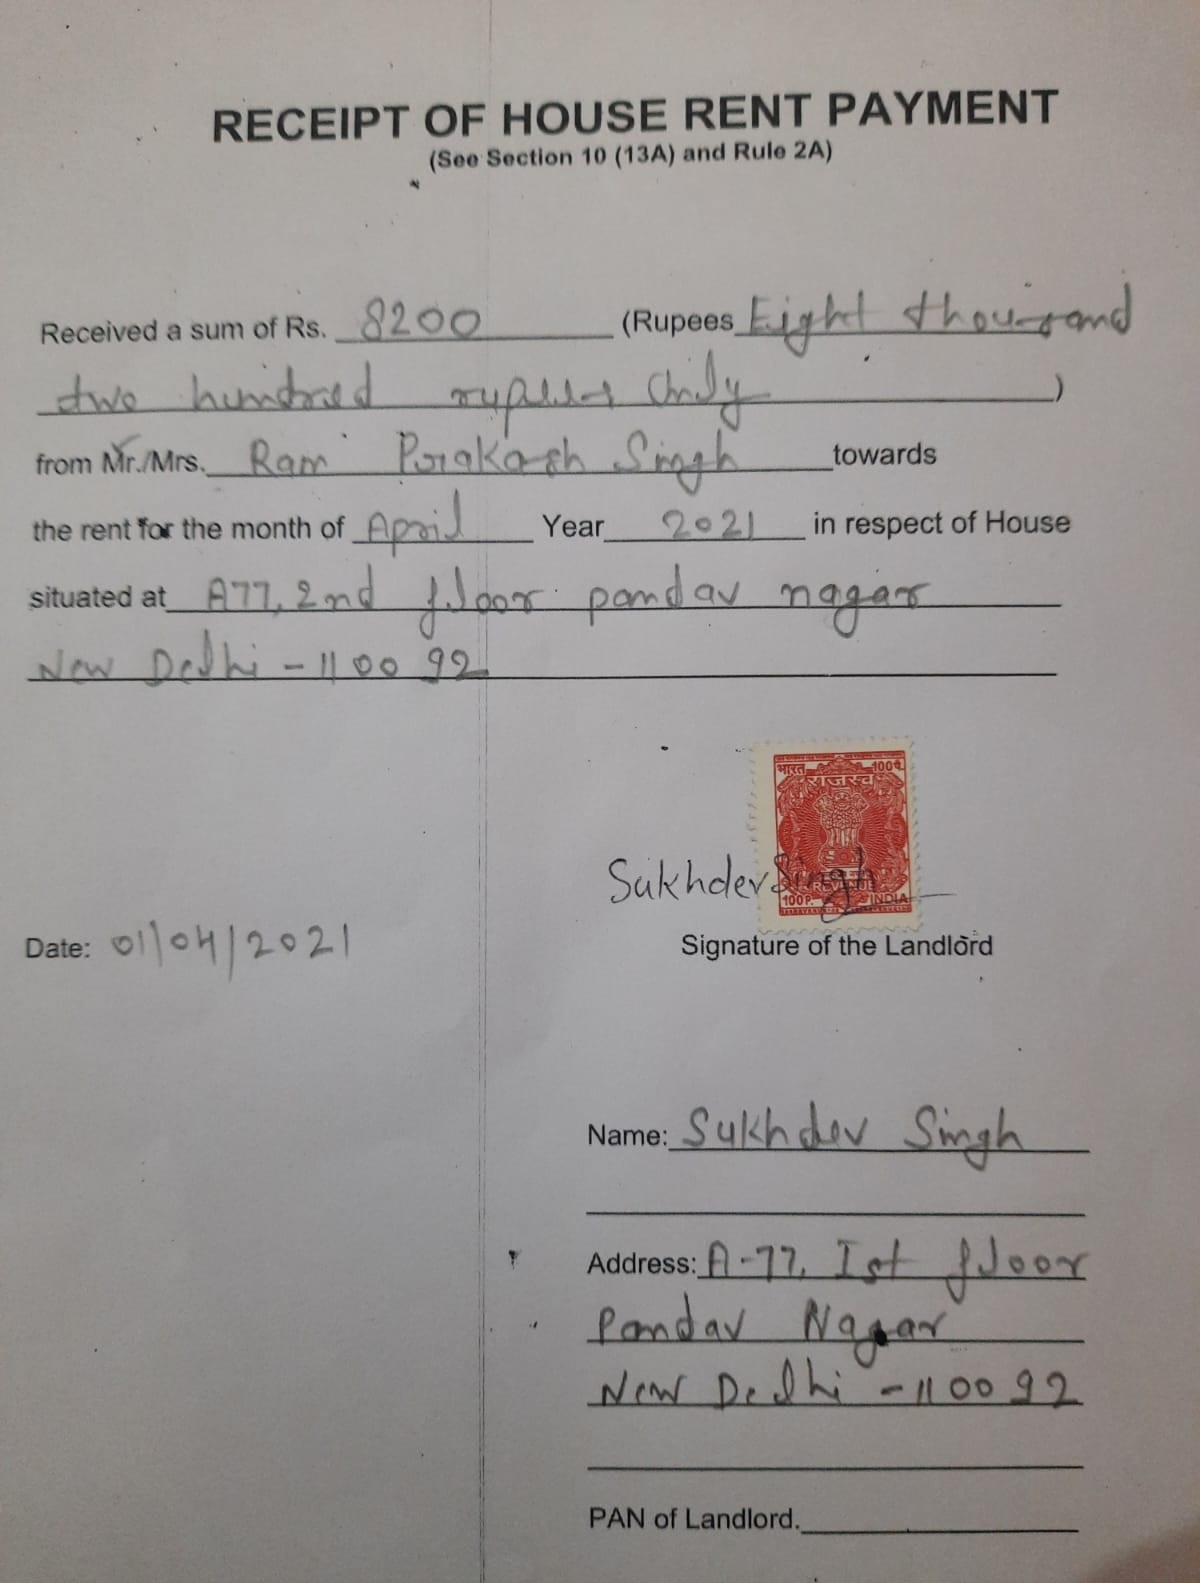 RECEIPT OF HOUSE RENT PAYMENT
(See Section 10 (13A) and Rule 2A)
Received a sum of Rs. 8200 (Rupees Eight thousand
two hundred rupees Only )
from Mr./Mrs. Ram Prakash Singh towards
the rent for the month of April Year 2021 in respect of House
situated at A77, 2nd floor pandav nagar
New Delhi - 110092
भारत 100पै.
राजस्व
Sukhdev Singh
REVENUE
100P. INDIA
Date: 01/04/2021
Signature of the Landlord
Name: Sukhdev Singh
Address: A-77, Ist floor
Pandav Nagar
New Delhi - 110092
PAN of Landlord.